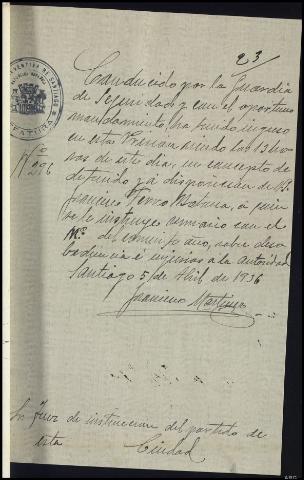 23
Conducido por la Guardia
de Seguridad y con el oportuno
mandamiento, ha tenido ingreso
en esta Prision siendo las 13 ho-
ras de este dia, en concepto de
detenido y á disposicion de V.S.
Francisco Ferro, á quien
se le instruye sumario con el
Nº del corriente año, sobre deso-
bediencia é injurias a la Autoridad
Santiago 5 de Abril de 1936
Francisco Martinez
Nº 296
Sr Juez de instruccion del partido de
esta Ciudad